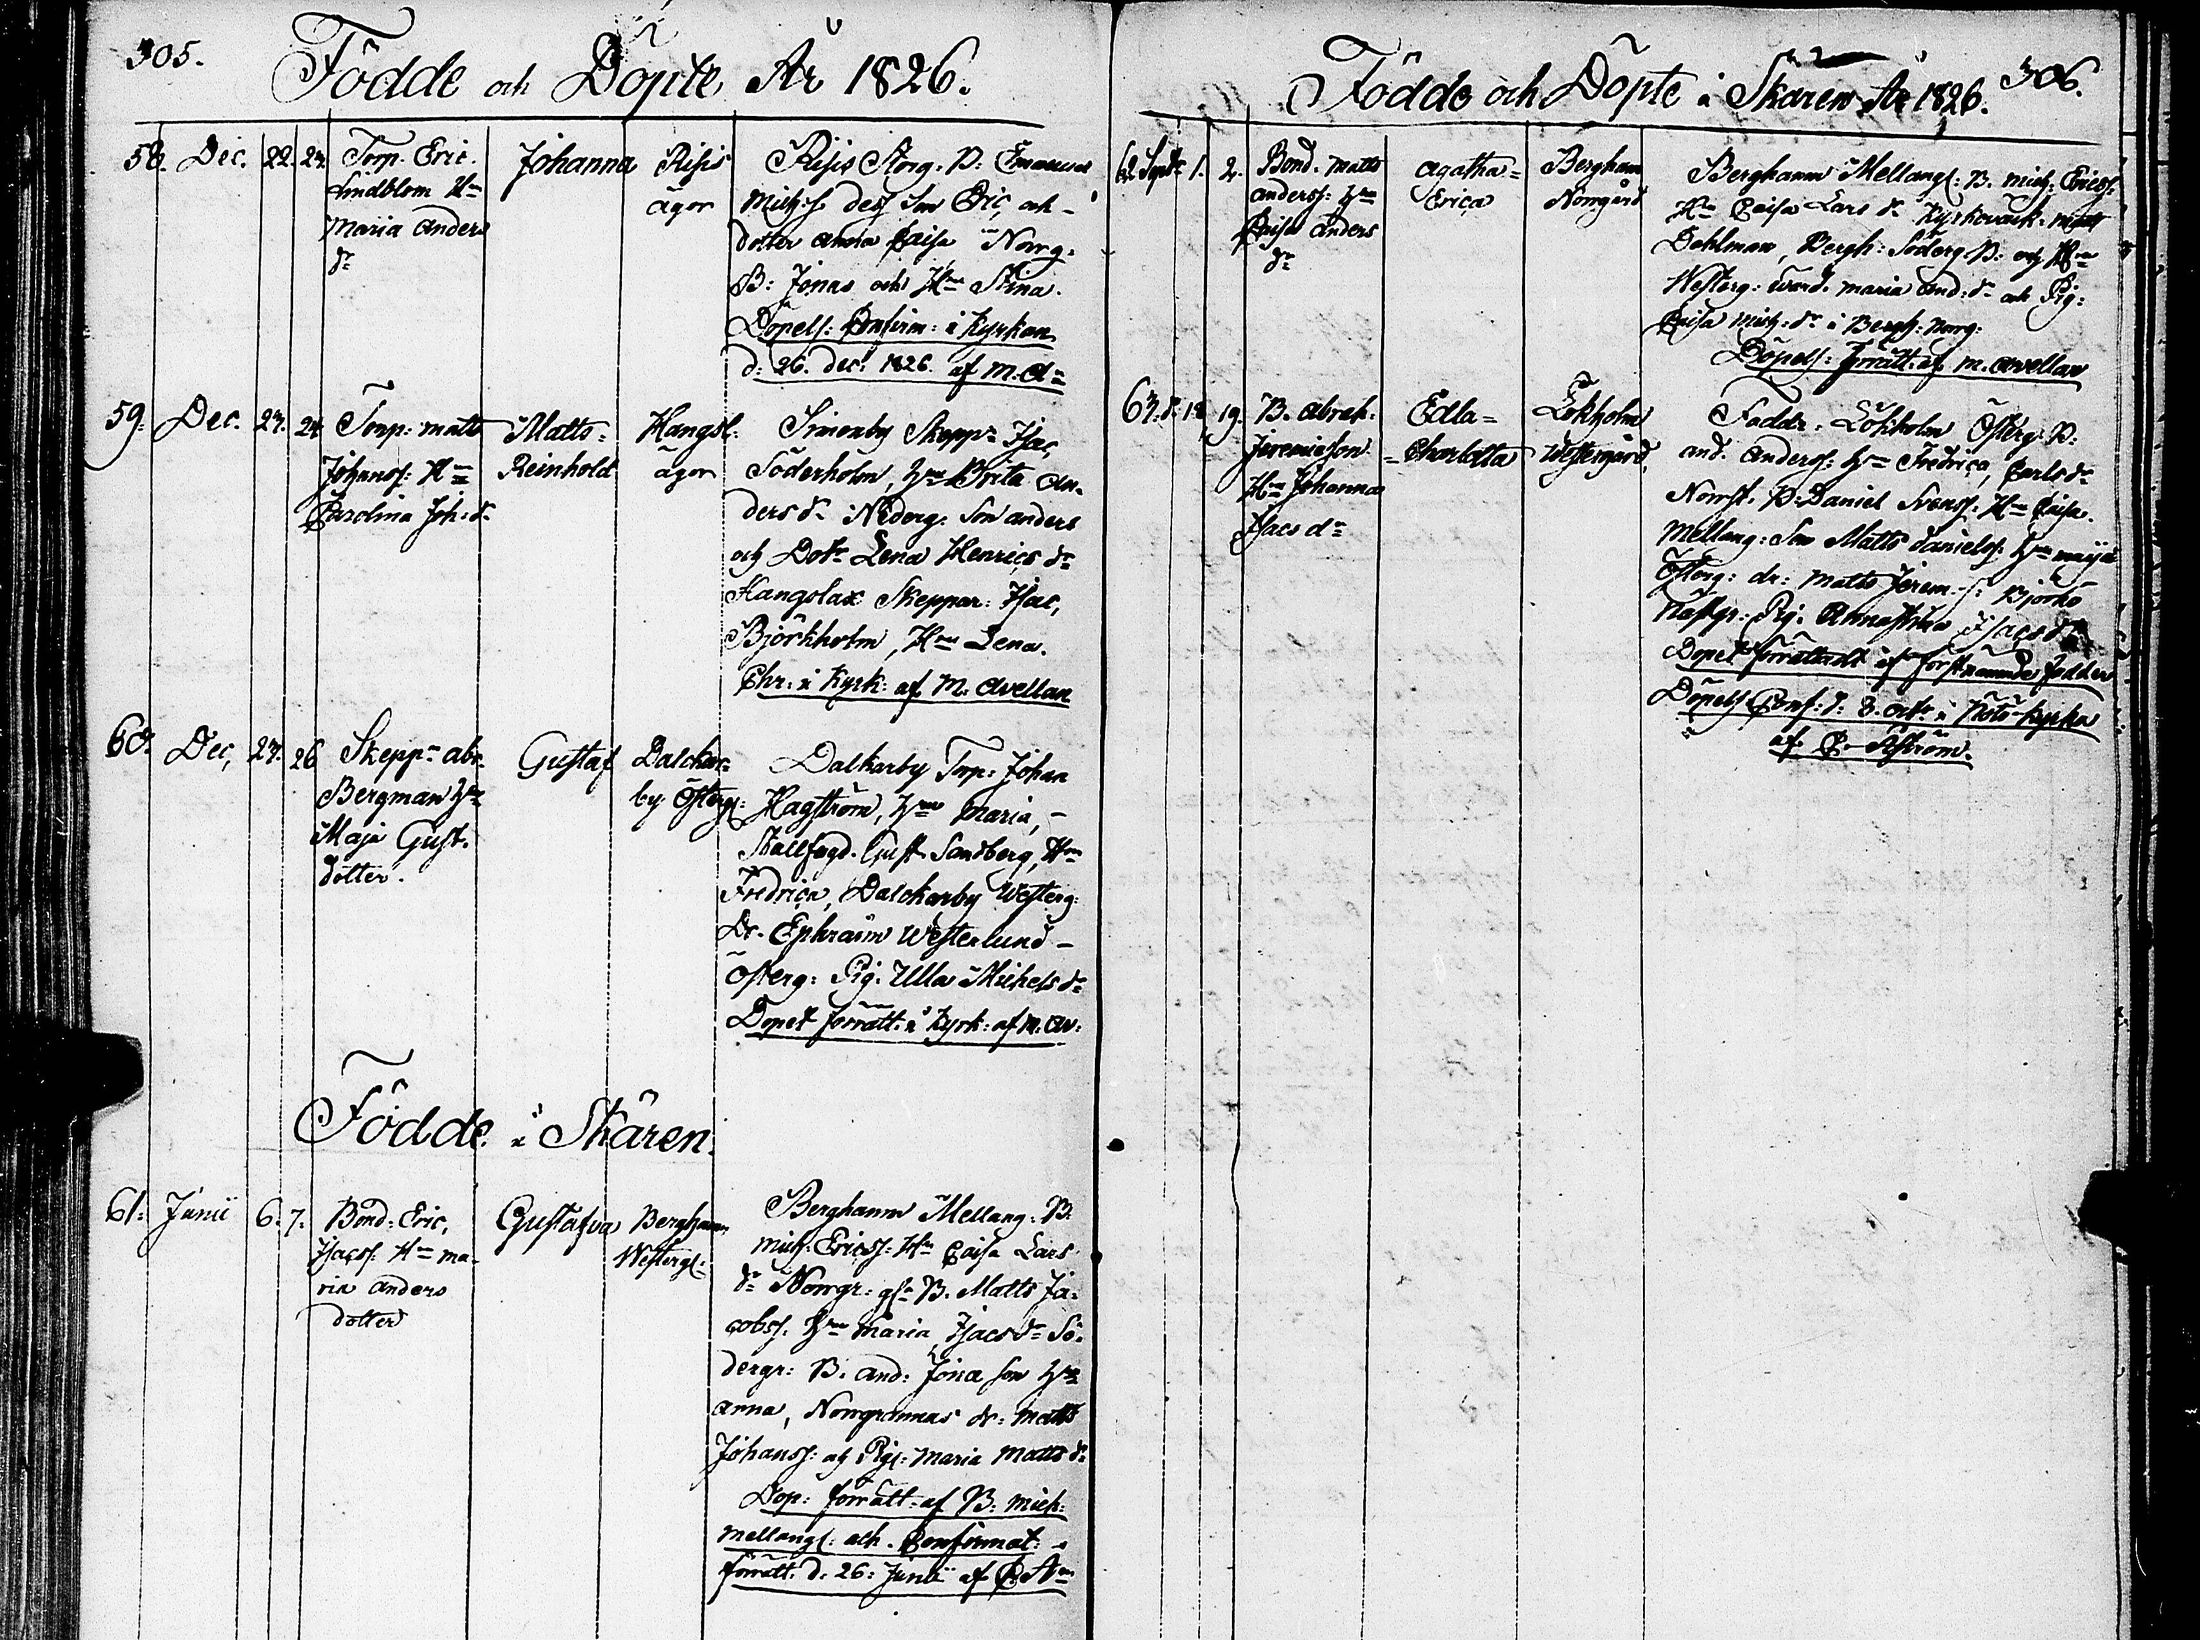 305.
Födde och Döpte År 1826.
58. Dec. 22. 24.
Torp. Eric.
Lindblom H
Maria Anders
dr
Johanna
Risis
ägor
Risis Storg. B: Emanuel
Mich:s des Son Eric, och
dotter Anna Caisa Norrg.
B: Jonas och Hu Stina.
Döpels: Confirm: i Kyrkan
d: 26. Dec: 1826. af M. A
59. Dec. 23. 24
Torp: Matts
Johanss: H
Carolina Joh: dr
Matts
Reinhold
Hangsl:
ägor
Simonby Skeppr Isac,
Söderholm, Hu Brita An-
ders dr Näderg: Son Anders
och Dotr Lena Henrics dr
Hangslax Skeppar: Isac,
Björkholm, Hu Lena.
Chr: i Kyrk: af M. Avellan
60. Dec, 23. 26
Skeppr Abr.
Bergman Hu
Maja Gust.
dotter.
Gustaf
Dalckar-
by Österg:
Dalkarby Torp: Johan
Hagström, Hu Maria,
Stallfogd. Gust. Sandberg, Hu
Fredrica, Dalckarby Westerg:
Dr. Ephraim Westerlund
Österg: Pig. Ulla Michels dr
Dopet förrätt: i Kyrk: af M. Av:
Födde i Skären.
61. Junii 6. 7.
Bond: Eric,
Isacss: Hu Ma-
ria Anders
dotter
Gustafva
Berghamn
Westergl:
Berghamn Mellang: B.
Mich: Ericss: Hu Caisa Lars
dr Norrgr: B. Matts Ja-
cobss. Hu Maria Isacs dr Sö-
dergr: B. And: Jona son Hu
Anna, Norrgrannas dr: Matts
Johanss: och Pig: Maria Matts dr
Dop: förrätt: af B: Mich:
Mellangl: och Confirmat:
förrätt: d. 26: Junii af
Födde och Döpte i Skären År 1826. 306.
62. Septr 1. 2.
Bond. Matts
Anderss: Hu
Caisa Anders
dr
Agatha
Erica
Berghamn
Norrgård
Berghamn Mellangl: B. Mich: Ericss:
Hu Caisa Lars dr Kyrkovärk: Matts
Dahlman, Bergh: Söderg B: och Hu
Westerg: Maria And: dr och Pig:
Caisa Mich: dr i Bergh: Norrg:
Döpels: förrätt: af M. Avellan
63. d. 18. 19.
B. Abrah.
Jeremiesson
Hu Johanna
Isacs dr
Edla
Charlotta
Lökholm
Westergård.
Faddr. Lökholm Österg: B:
And. Anderss: Hu Fredrica, Carls dr
Norrst. B. Daniel Svenss: Hu Caisa.
Mellang: Son Matts Daniels: Hu Maja
Österg: dr: Matts Jerem: s: Björkö
Pig. Anna Stina Isacs dr
Dopet förrättadt af förstnämnde fadder
Döpels Conf: d: 8. octr i Nötö kyrka
af C. Åström.